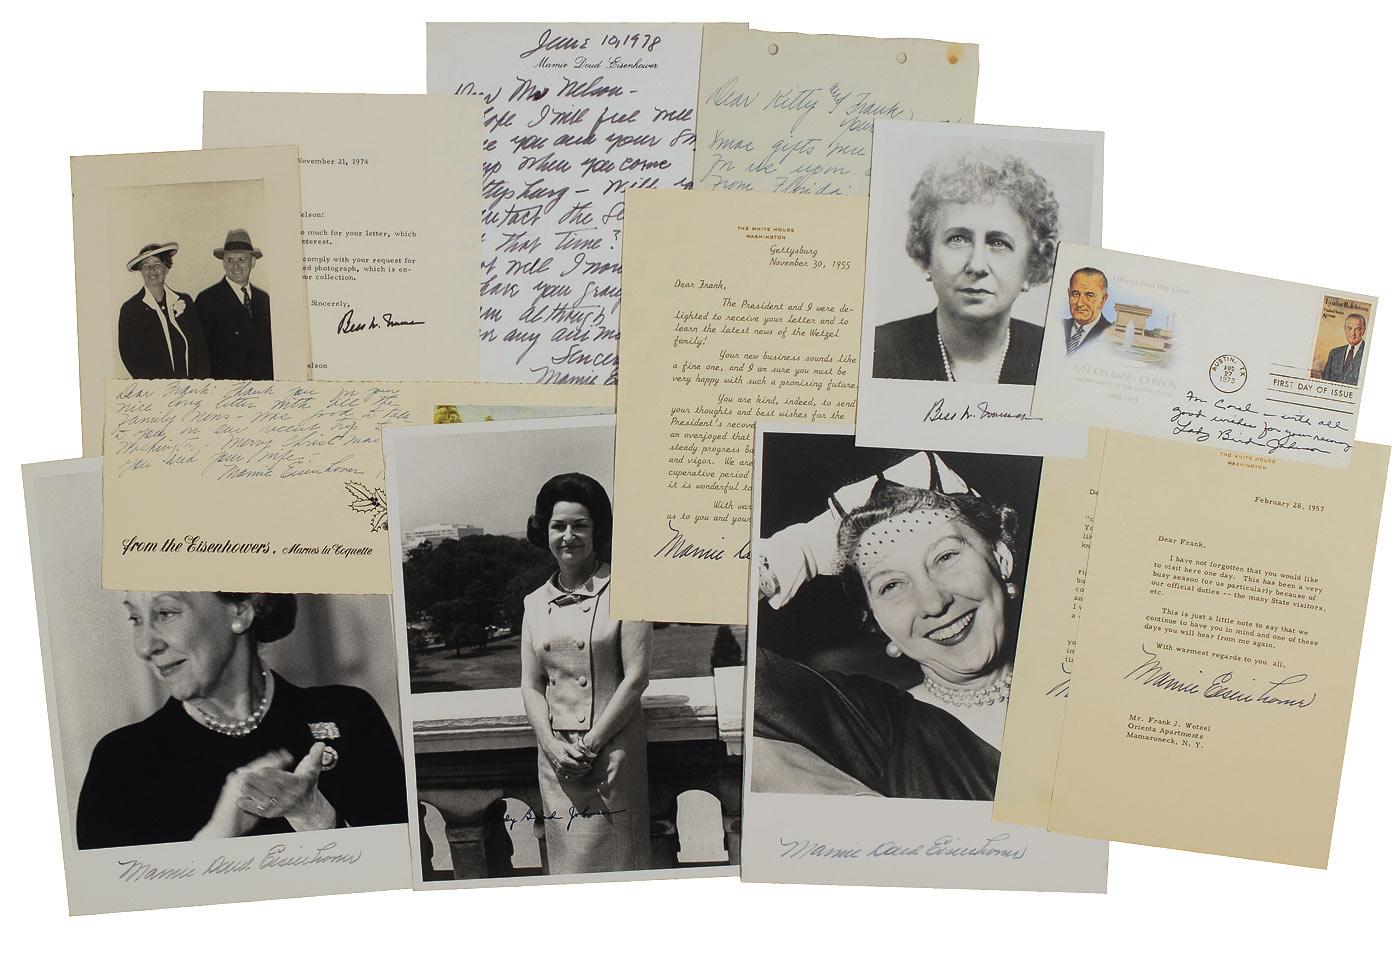 June 10, 1978
Mamie Doud Eisenhower
Dear Mr Nelson -
hope I will feel well
you and your
up when you come
Will
contact the
that time?
will I now
have your
although
any
Sincer
Mamie
Dear Kitty and Frank,
Your
Xmas gifts
for me upon
From Florida:
November 21, 1974
elson:
o much for your letter, which
nterest.
comply with your request for
ed photograph, which is en-
ur collection.
Sincerely,
Bess W. Truman
elson
THE WHITE HOUSE
WASHINGTON
Gettysburg
November 30, 1955
Dear Frank,
The President and I were de-
lighted to receive your letter and to
learn the latest news of the Wetzel
family!
Your new business sounds like
a fine one, and I am sure you must be
very happy with such a promising future.
You are kind, indeed, to send
your thoughts and best wishes for the
President's recove
am overjoyed that
steady progress ba
and vigor. We are
cuperative period
it is wonderful to
With war
us to you and your
Mamie D
Bess W. Truman
Official First Day Cover
LYNDON BAINES JOHNSON
THE PRESIDENT OF THE UNITED STATES
1908-1973
Lyndon B. Johnson
United States
8 cents
AUSTIN, TX
AUG
27
1973
FIRST DAY OF ISSUE
For Coral - with all
good wishes for your recovery
Lady Bird Johnson
Dear Frank: Thank you for your
nice long letter with all the
family news - Was good to talk
to you on our recent trip to
Washington - Merry Christmas
you and your wife.
Mamie Eisenhower
from the Eisenhowers, Marnes la Coquette
THE WHITE HOUSE
WASHINGTON
February 28, 1957
Dear Frank,
I have not forgotten that you would like
to visit here one day. This has been a very
busy season for us particularly because of
our official duties -- the many State visitors,
etc.
This is just a little note to say that we
continue to have you in mind and one of these
days you will hear from me again.
With warmest regards to you all,
Mamie Eisenhower
Mr. Frank J. Wetzel
Orienta Apartments
Mamaroneck, N. Y.
De
Mamie Doud Eisenhower
Lady Bird Johnson
Mamie Doud Eisenhower